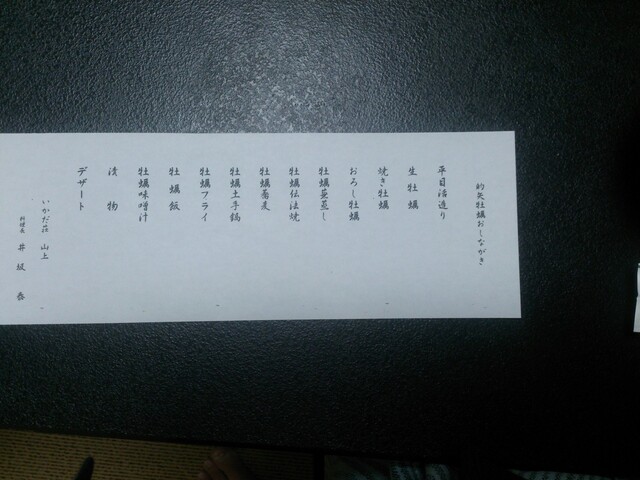 的矢牡蠣おしながき
平目活造り
生牡蠣
焼き牡蠣
おろし牡蠣
牡蠣蕪蒸し
牡蠣伝法焼
牡蠣蕎麦
牡蠣土手鍋
牡蠣フライ
牡蠣飯
牡蠣味噌汁
漬物
デザート
いかだ荘 山上
料理長 井坂 泰